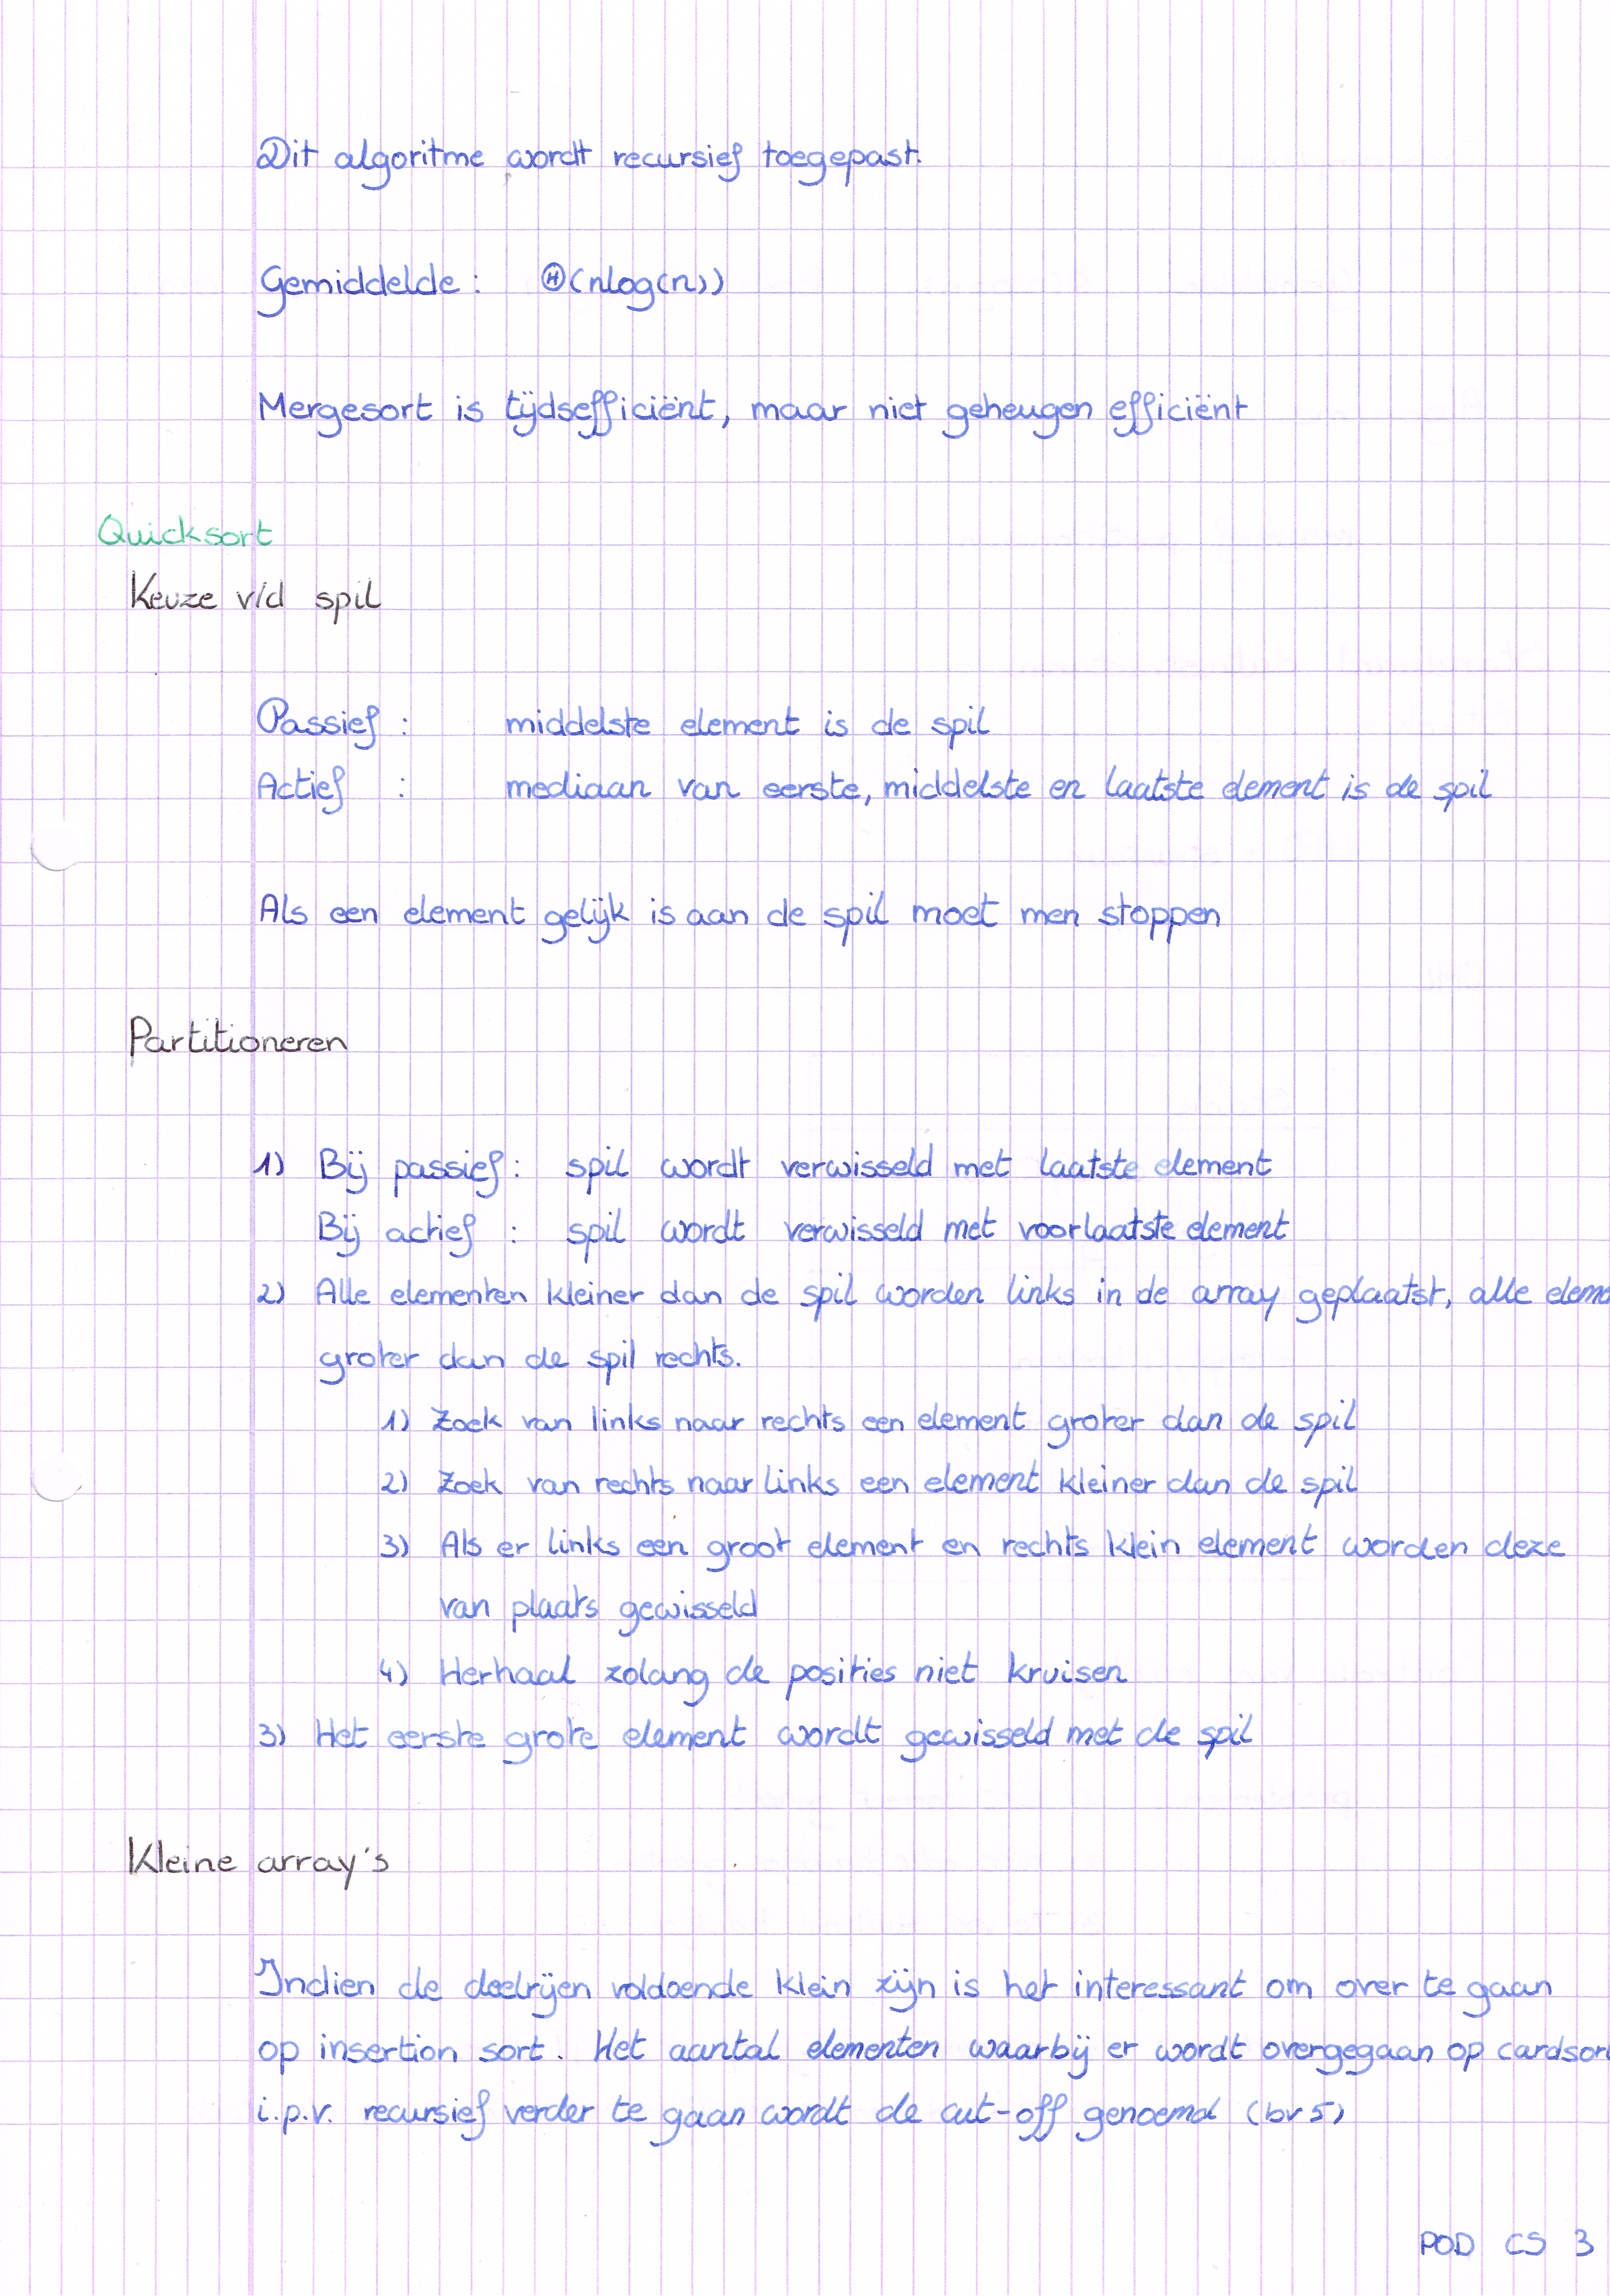 Dit algoritme wordt recursief toegepast.
Gemiddelde : Θ(nlog(n))
Mergesort is tijdsefficiënt, maar niet geheugen efficiënt
Quicksort
Keuze v/d spil
Passief : middelste element is de spil
Actief : mediaan van eerste, middelste en laatste element is de spil
Als een element gelijk is aan de spil moet men stoppen
Partitioneren
1) Bij passief : spil wordt verwisseld met laatste element
Bij actief : spil wordt verwisseld met voorlaatste element
2) Alle elementen kleiner dan de spil worden links in de array geplaatst, alle eleme
groter dan de spil rechts.
1) Zoek van links naar rechts een element groter dan de spil
2) Zoek van rechts naar links een element kleiner dan de spil
3) Als er links een groot element en rechts klein element worden deze
van plaats gewisseld
4) Herhaal zolang de posities niet kruisen
3) Het eerste grote element wordt gewisseld met de spil
Kleine array's
Indien de deelrijen voldoende klein zijn is het interessant om over te gaan
op insertion sort. Het aantal elementen waarbij er wordt overgegaan op cardsort
i.p.v. recursief verder te gaan wordt de cut-off genoemd (bv 5)
POD CS 3